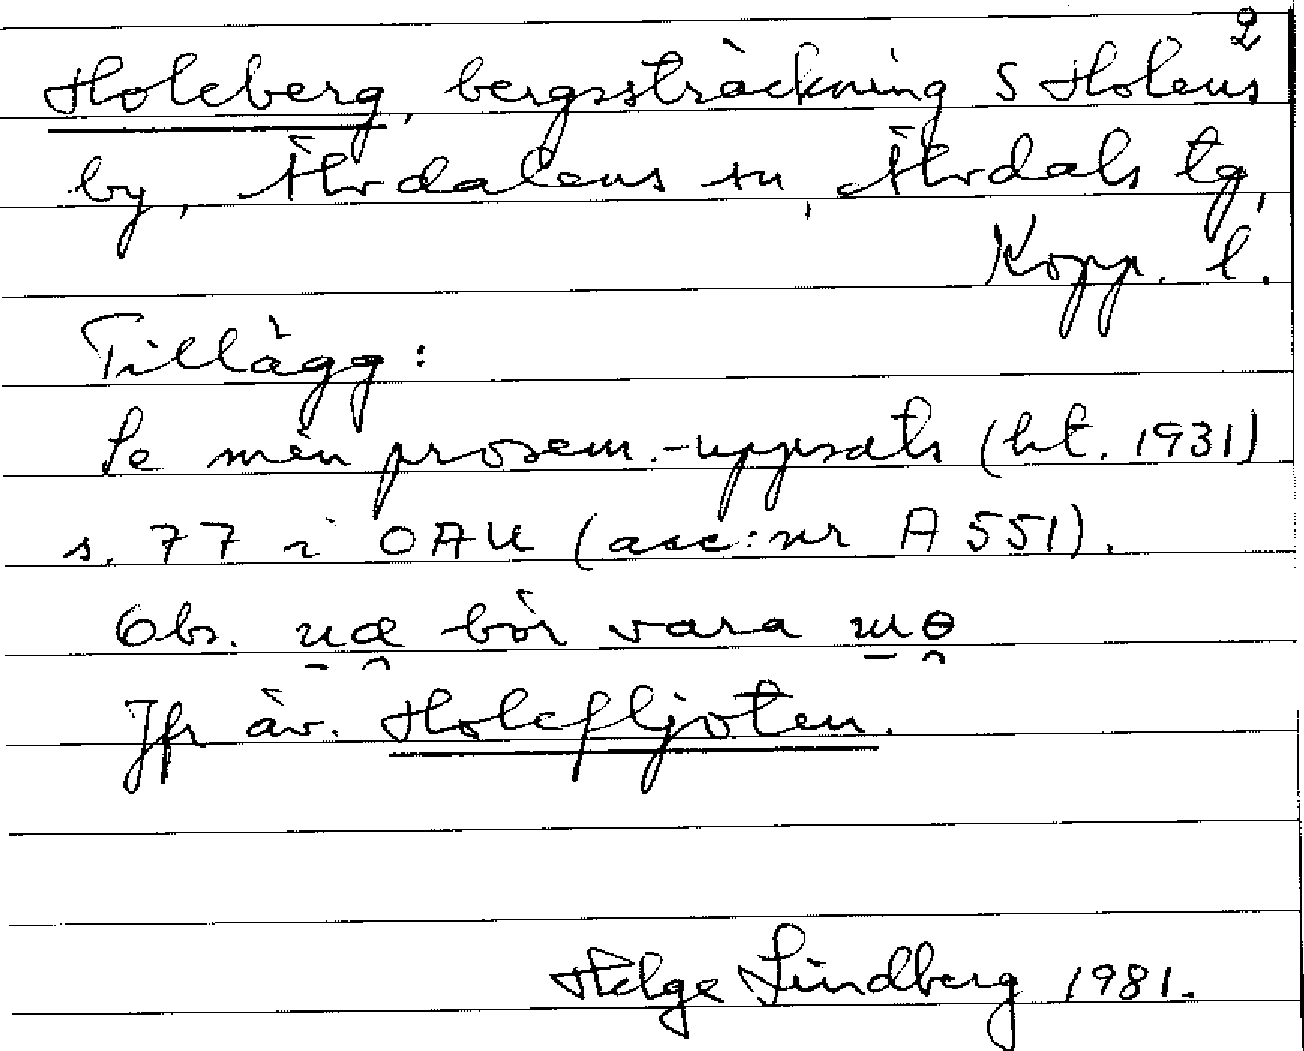 2
Holeberg, bergssträckning S Holens
by, Älvdalens sn, Älvdals tg,
Kopp. l.
Tillägg:
Se min prosem.-uppsats (ht. 1931)
s. 77 i OAU (acc:nr A 551).
Obs. bör vara
Jfr äv. Holefljoten.
Helge Lindberg 1981.